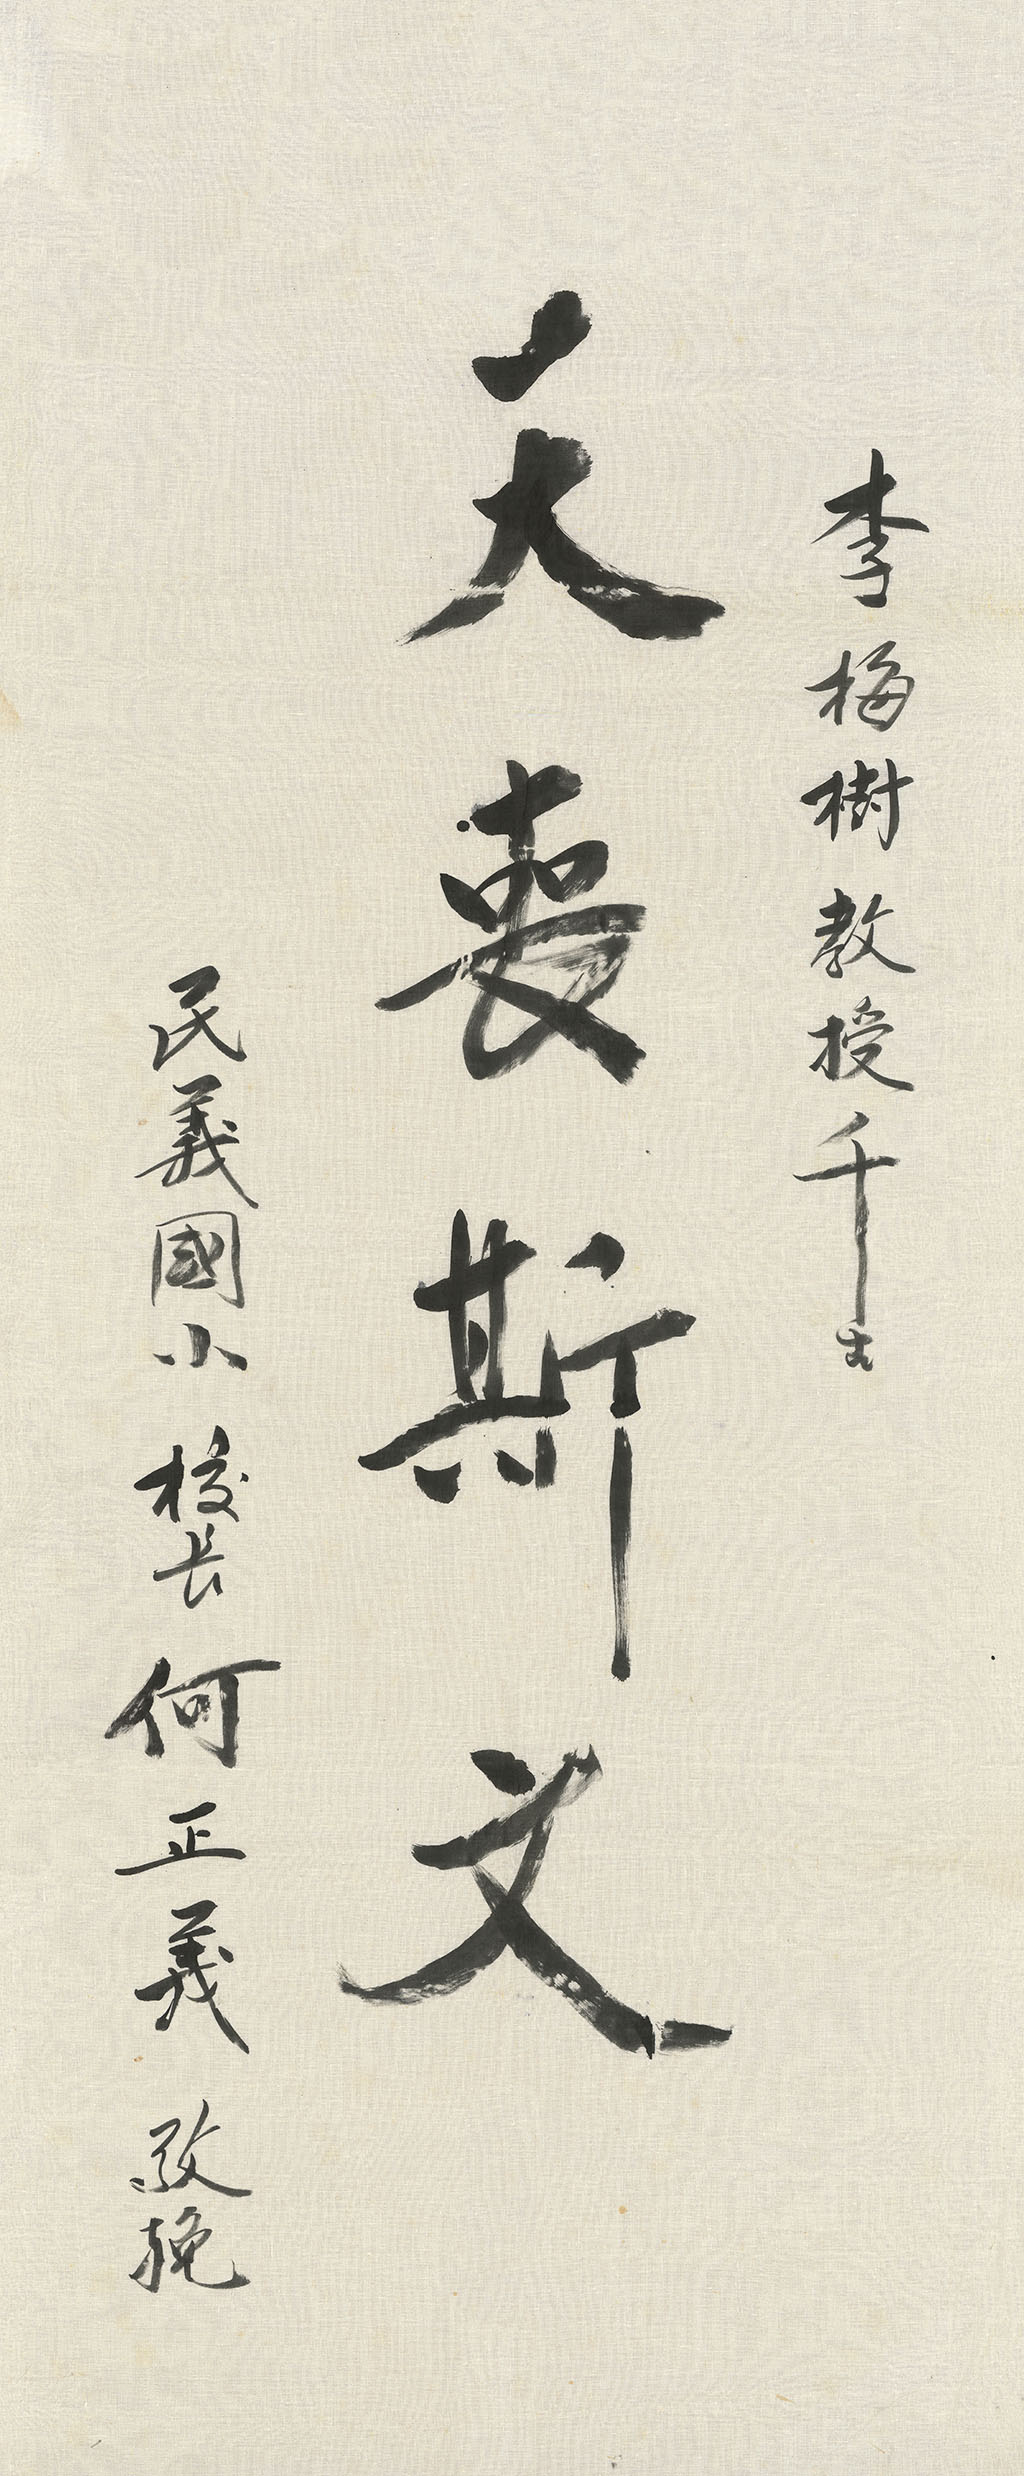 李梅樹教授千古
天喪斯文
民義國小校長何正義敬輓